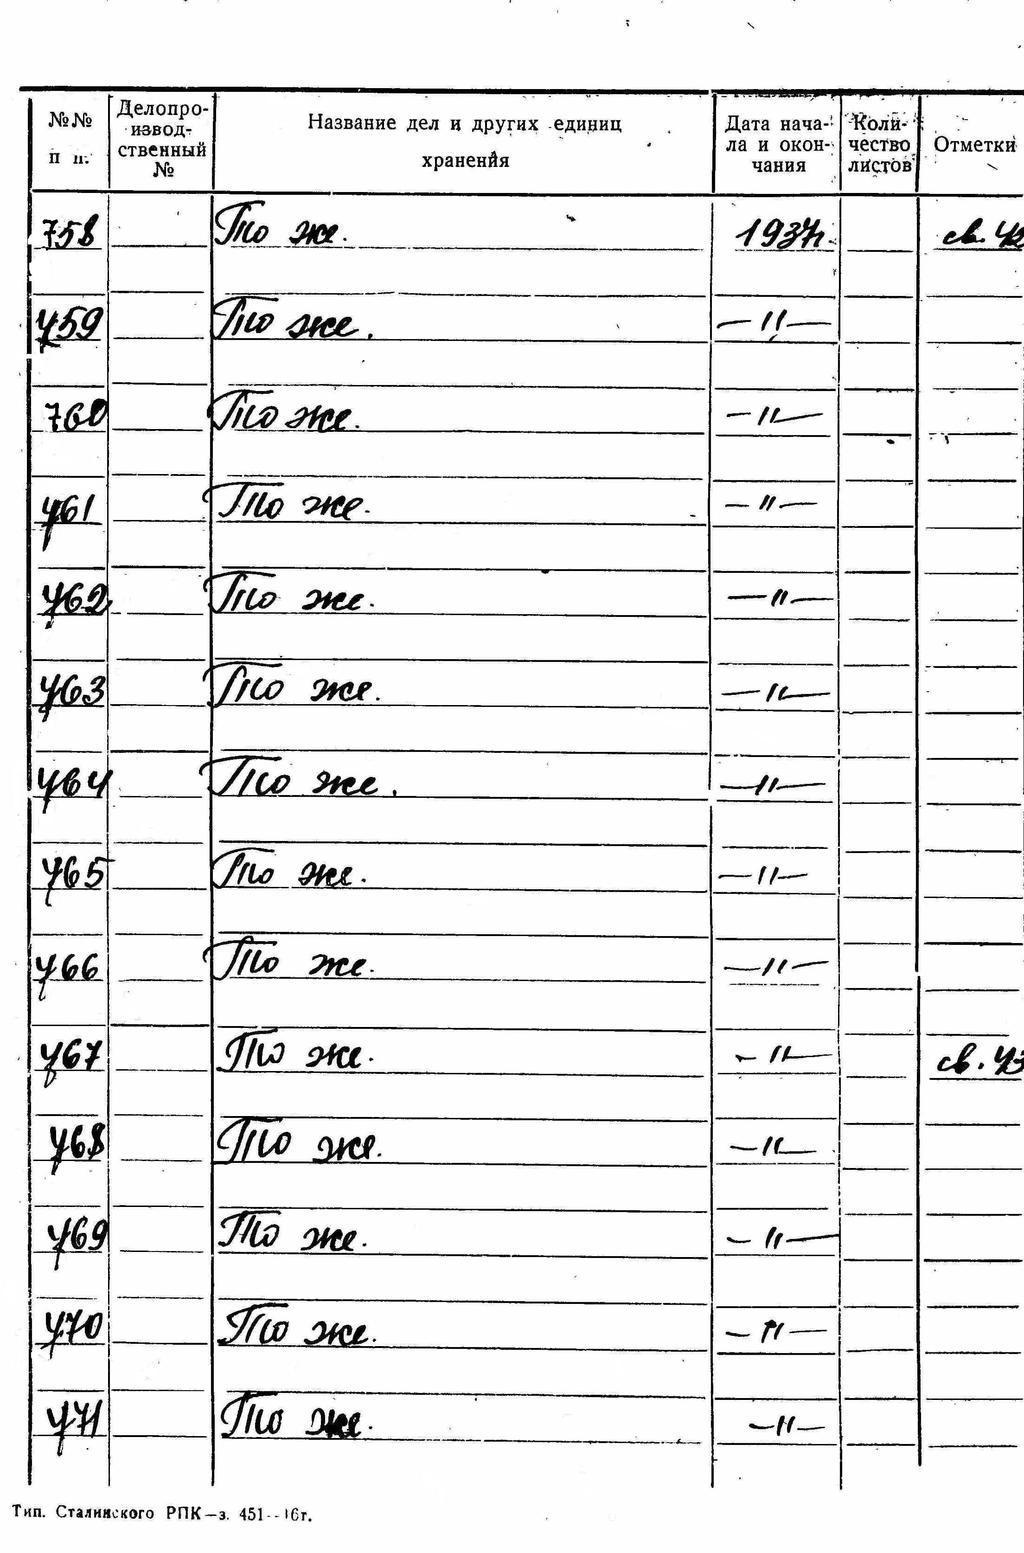 №№ п п.
Делопро-
извод-
ственный
№
Название дел и других единиц
хранения
Дата нача-
ла и окон-
чания
Коли-
чество
листов
Отметки
758 То же. 1937г. св. 42
759 То же. —〃—
760 То же. —〃—
761 То же. —〃—
762 То же. —〃—
763 То же. —〃—
764 То же. —〃—
765 То же. —〃—
766 То же. —〃—
767 То же. —〃— св. 43
768 То же. —〃—
769 То же. —〃—
770 То же. —〃—
771 То же. —〃—
Тип. Сталинского РПК—з. 451--16т.